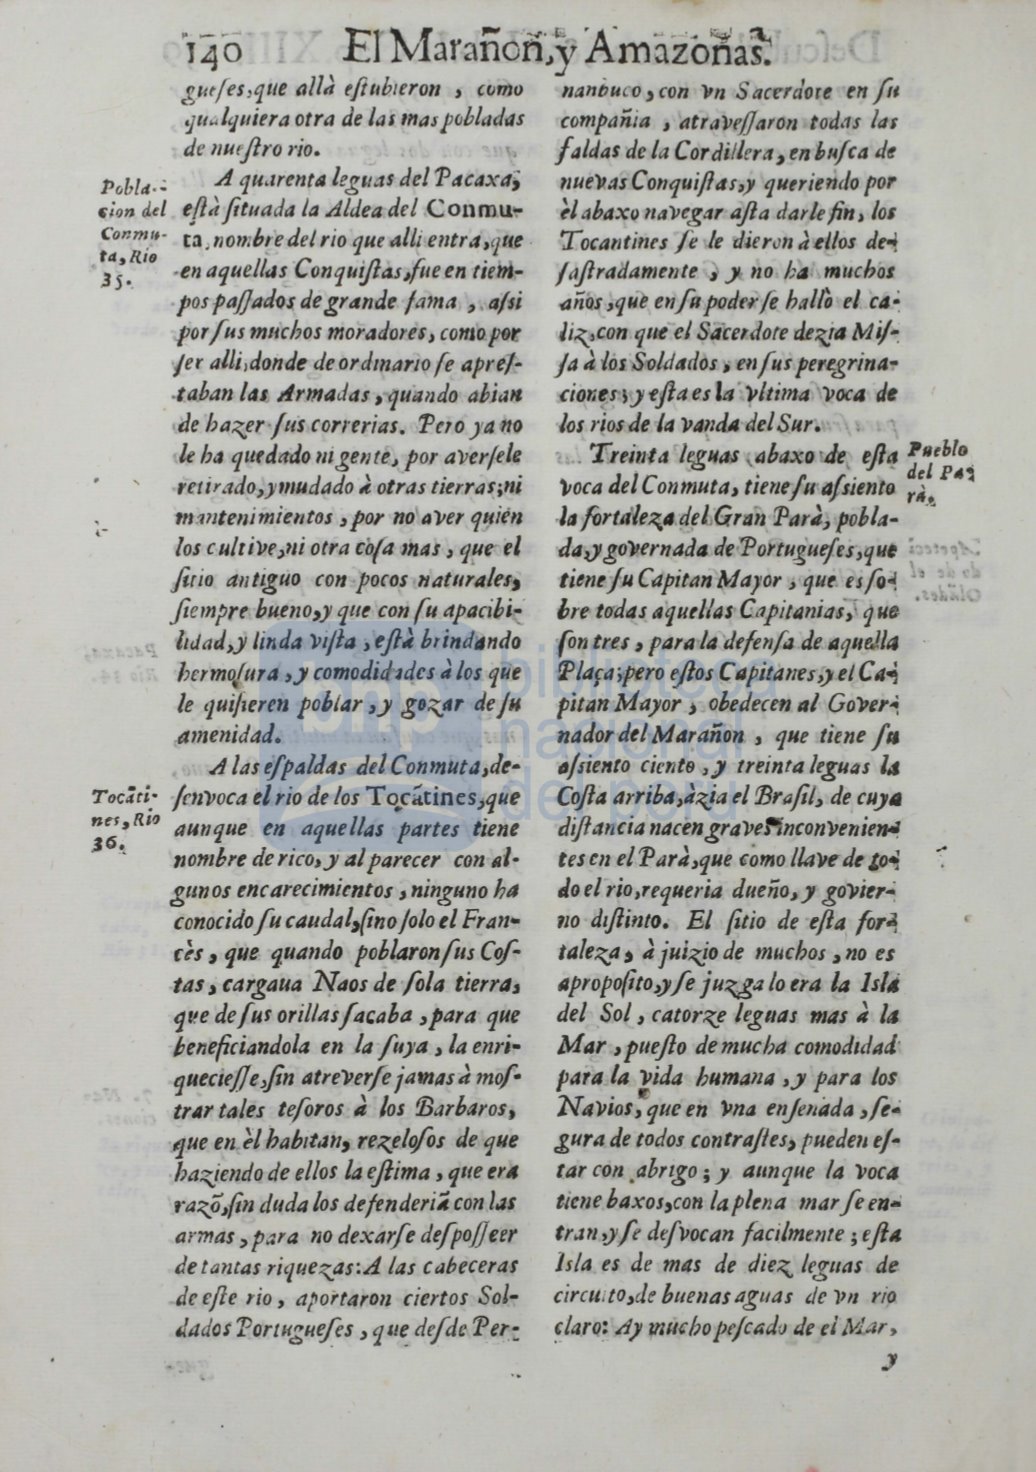 140 El Marañon, y Amazonas.
gueses, que allà estubieron, como
qualquiera otra de las mas pobladas
de nuestro rio.
A quarenta leguas del Pacaxa,
està situada la Aldea del Conmu-
ta, nombre del rio que alli entra, que
en aquellas Conquistas, fue en tiem-
pos passados de grande fama, assi
por sus muchos moradores, como por
ser alli, donde de ordinario se apres-
taban las Armadas, quando abian
de hazer sus correrias. Pero ya no
le ha quedado ni gente, por aversele
retirado, y mudado à otras tierras; ni
mantenimientos, por no aver quien
los cultive, ni otra cosa mas, que el
sitio antiguo con pocos naturales,
siempre bueno, y que con su apacibi-
lidad, y linda vista, està brindando
hermosura, y comodidades à los que
le quisieren poblar, y gozar de su
amenidad.
A las espaldas del Conmuta, de-
senvoca el rio de los Tocãtines, que
aunque en aquellas partes tiene
nombre de rico, y al parecer con al-
gunos encarecimientos, ninguno ha
conocido su caudal, sino solo el Fran-
cès, que quando poblaron sus Cos-
tas, cargaua Naos de sola tierra,
que de sus orillas sacaba, para que
beneficiandola en la suya, la enri-
queciesse, sin atreverse jamas à mos-
trar tales tesoros à los Barbaros,
que en èl habitan, rezelosos de que
haziendo de ellos la estima, que era
razõ, sin duda los defenderiã con las
armas, para no dexarse despos­seer
de tantas riquezas: A las cabeceras
de este rio, aportaron ciertos Sol-
dados Portugueses, que desde Per-
Pobla-
cion del
Conmu-
ta, Rio
35.
Tocãti-
nes, Rio
36.
nanbuco, con vn Sacerdote en su
compañia, atravessaron todas las
faldas de la Cordillera, en busca de
nuevas Conquistas, y queriendo por
èl abaxo navegar asta darle fin, los
Tocantines se le dieron à ellos de-
sastradamente, y no ha muchos
años, que en su poder se hallò el ca-
liz, con que el Sacerdote dezia Mis-
sa à los Soldados, en sus peregrina-
ciones; y esta es la vltima voca de
los rios de la vanda del Sur.
Treinta leguas abaxo de esta
voca del Conmuta, tiene su assiento
la fortaleza del Gran Parà, pobla-
da, y governada de Portugueses, que
tiene su Capitan Mayor, que es so-
bre todas aquellas Capitanias, que
son tres, para la defensa de aquella
Plaça; pero estos Capitanes, y el Ca-
pitan Mayor, obedecen al Gover-
nador del Marañon, que tiene su
assiento ciento, y treinta leguas la
Costa arriba, àzia el Brasil, de cuya
distancia nacen graves inconvenien-
tes en el Parà, que como llave de to-
do el rio, requeria dueño, y govier-
no distinto. El sitio de esta for-
taleza, à juizio de muchos, no es
aproposito, y se juzga lo era la Isla
del Sol, catorze leguas mas à la
Mar, puesto de mucha comodidad
para la vida humana, y para los
Navios, que en vna ensenada, se-
gura de todos contrastes, pueden es-
tar con abrigo; y aunque la voca
tiene baxos, con la plena mar se en-
tran, y se desvocan facilmente; esta
Isla es de mas de diez leguas de
circuito, de buenas aguas de vn rio
claro: Ay mucho pescado de el Mar,
y
Pueblo
del Pa-
rà.
biblioteca
nacional
del perú